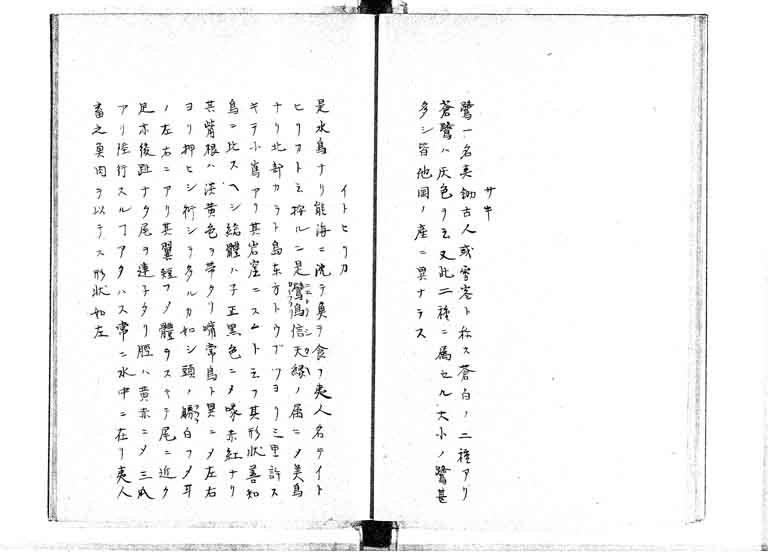 サキ
鷺一名舂鋤古人或雪客ト称ス蒼白ノ二種アリ
蒼鷺ハ灰色リ又此二種ニ属セル大小ノ鷺甚
多シ皆他国ノ産ニ異ナラス
イトヒリカ
是水鳥ナリ能海ニ沈テ魚ヲ食フ夷人名テイト
ヒリカト云按ルニ是鸞鳥信天縁ノ属ニメ美鳥
ナリ北部カラト島东方トウブツヨリ三里許ス
キテ小嶌アリ其岩崖ニスムト云フ其形状善知
鳥ニ比スヘシ総體ハ子正黒色ニメ喙赤紅ナリ
其觜根ハ淡黄色ヲ帯タリ嘴常鳥ト異ニメ左右
ヨリ押ヒシ行シテタルカ如シ頭ノ白フメ耳
ノ左右ニアリ其翼短フメ體ヲスキテ尾ニ近ク
足亦後趾ナク尾ヲ連子タリ脛ハ黄赤ニメ三爪
アリ陸行スルヿアタハス常ニ水中ニ在リ夷人
畜之魚肉ヲ以テス形状如左